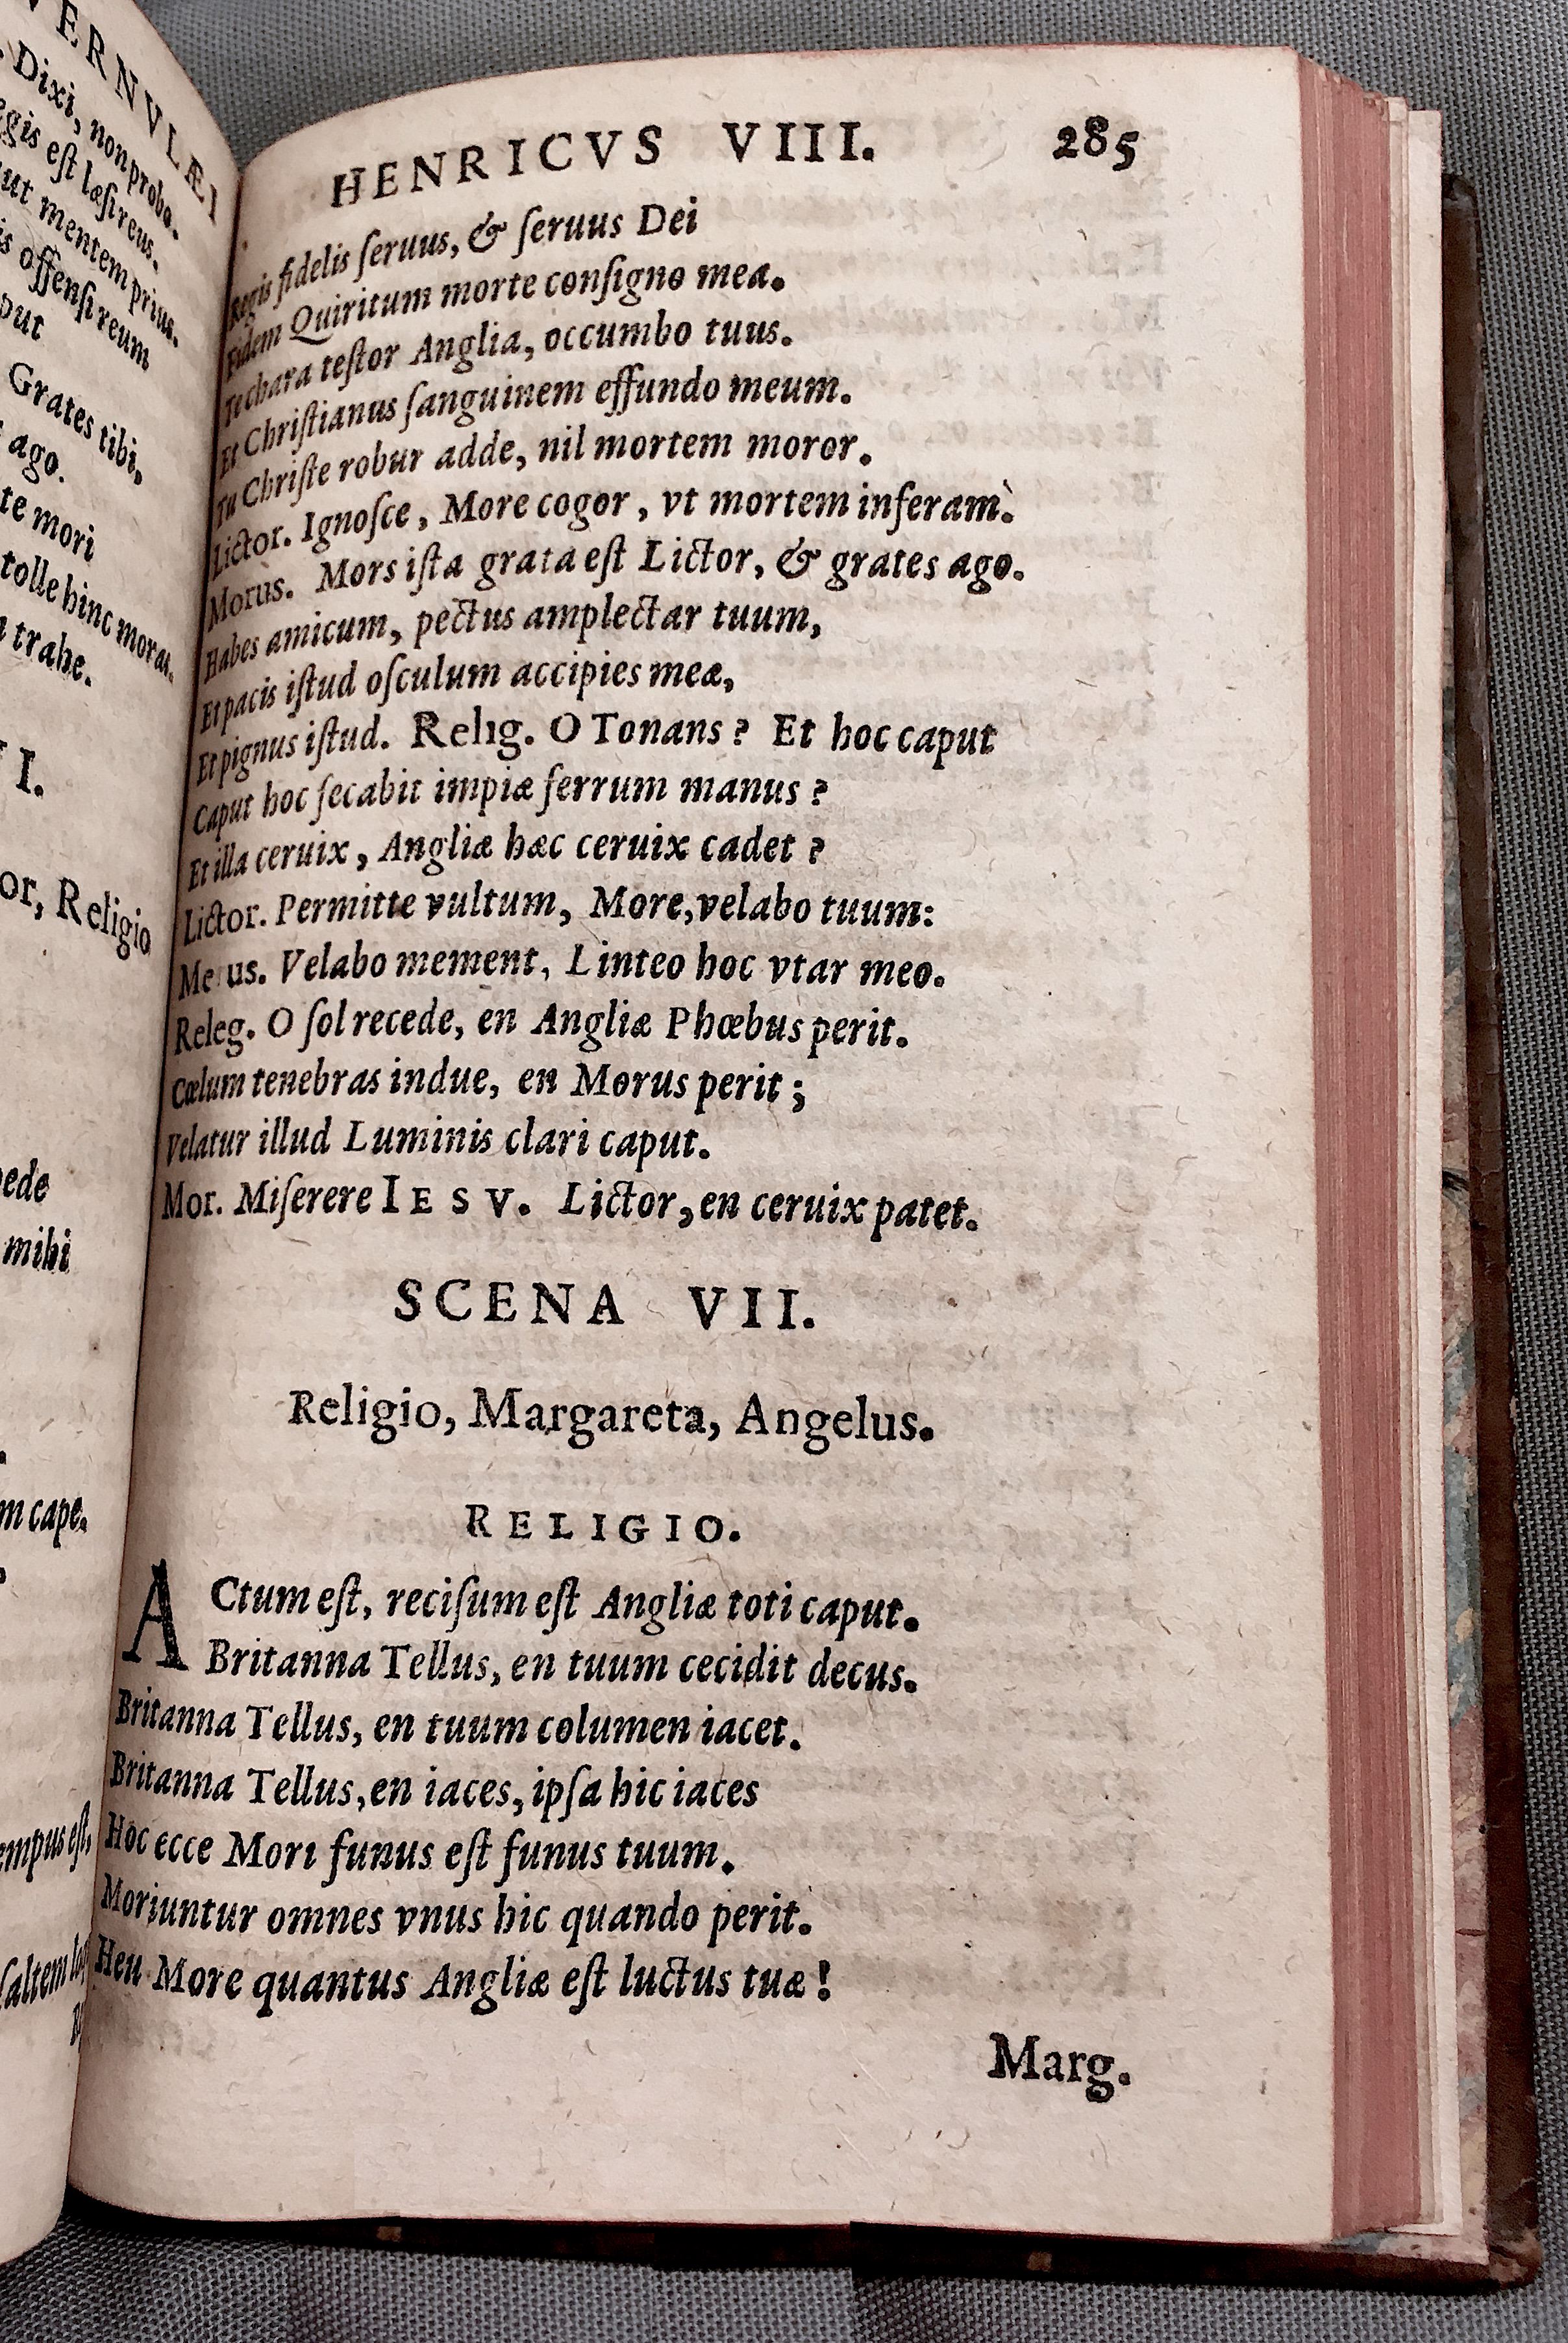 VERNVLÆI
Dixi, non probo.
egis eſt læſi reus.
ut mentem prius.
is offenſi reum
put
Grates tibi,
ago.
te mori
tolle hinc moras.
trahe.
I.
or, Religio
ede
mihi
m cape.
empus eſt,
ſaltem
HENRICVS VIII. 285
Regis fidelis ſeruus, & ſeruus Dei
Fidem Quiritum morte conſigno mea.
Te chara teſtor Anglia, occumbo tuus.
Et Chriſtianus ſanguinem effundo meum.
Tu Chriſte robur adde, nil mortem moror.
Lictor. Ignoſce, More cogor, vt mortem inferam.
Morus. Mors iſta grata eſt Lictor, & grates ago.
Habes amicum, pectus amplectar tuum,
Et pacis iſtud oſculum accipies meæ,
Et pignus iſtud. Relig. O Tonans? Et hoc caput
Caput hoc ſecabit impiæ ferrum manus?
Et illa ceruix, Angliæ hæc ceruix cadet?
Lictor. Permitte vultum, More, velabo tuum:
Morus. Velabo mement, Linteo hoc vtar meo.
Releg. O ſol recede, en Angliæ Phœbus perit.
Cœlum tenebras indue, en Morus perit;
Velatur illud Luminis clari caput.
Mor. Miſerere IESV. Lictor, en ceruix patet.
SCENA VII.
Religio, Margareta, Angelus.
RELIGIO.
ACtum eſt, reciſum eſt Angliæ toti caput.
Britanna Tellus, en tuum cecidit decus.
Britanna Tellus, en tuum columen iacet.
Britanna Tellus, en iaces, ipſa hic iaces
Hoc ecce Mori funus eſt funus tuum.
Moriuntur omnes vnus hic quando perit.
Heu More quantus Angliæ eſt luctus tuæ!
Marg.